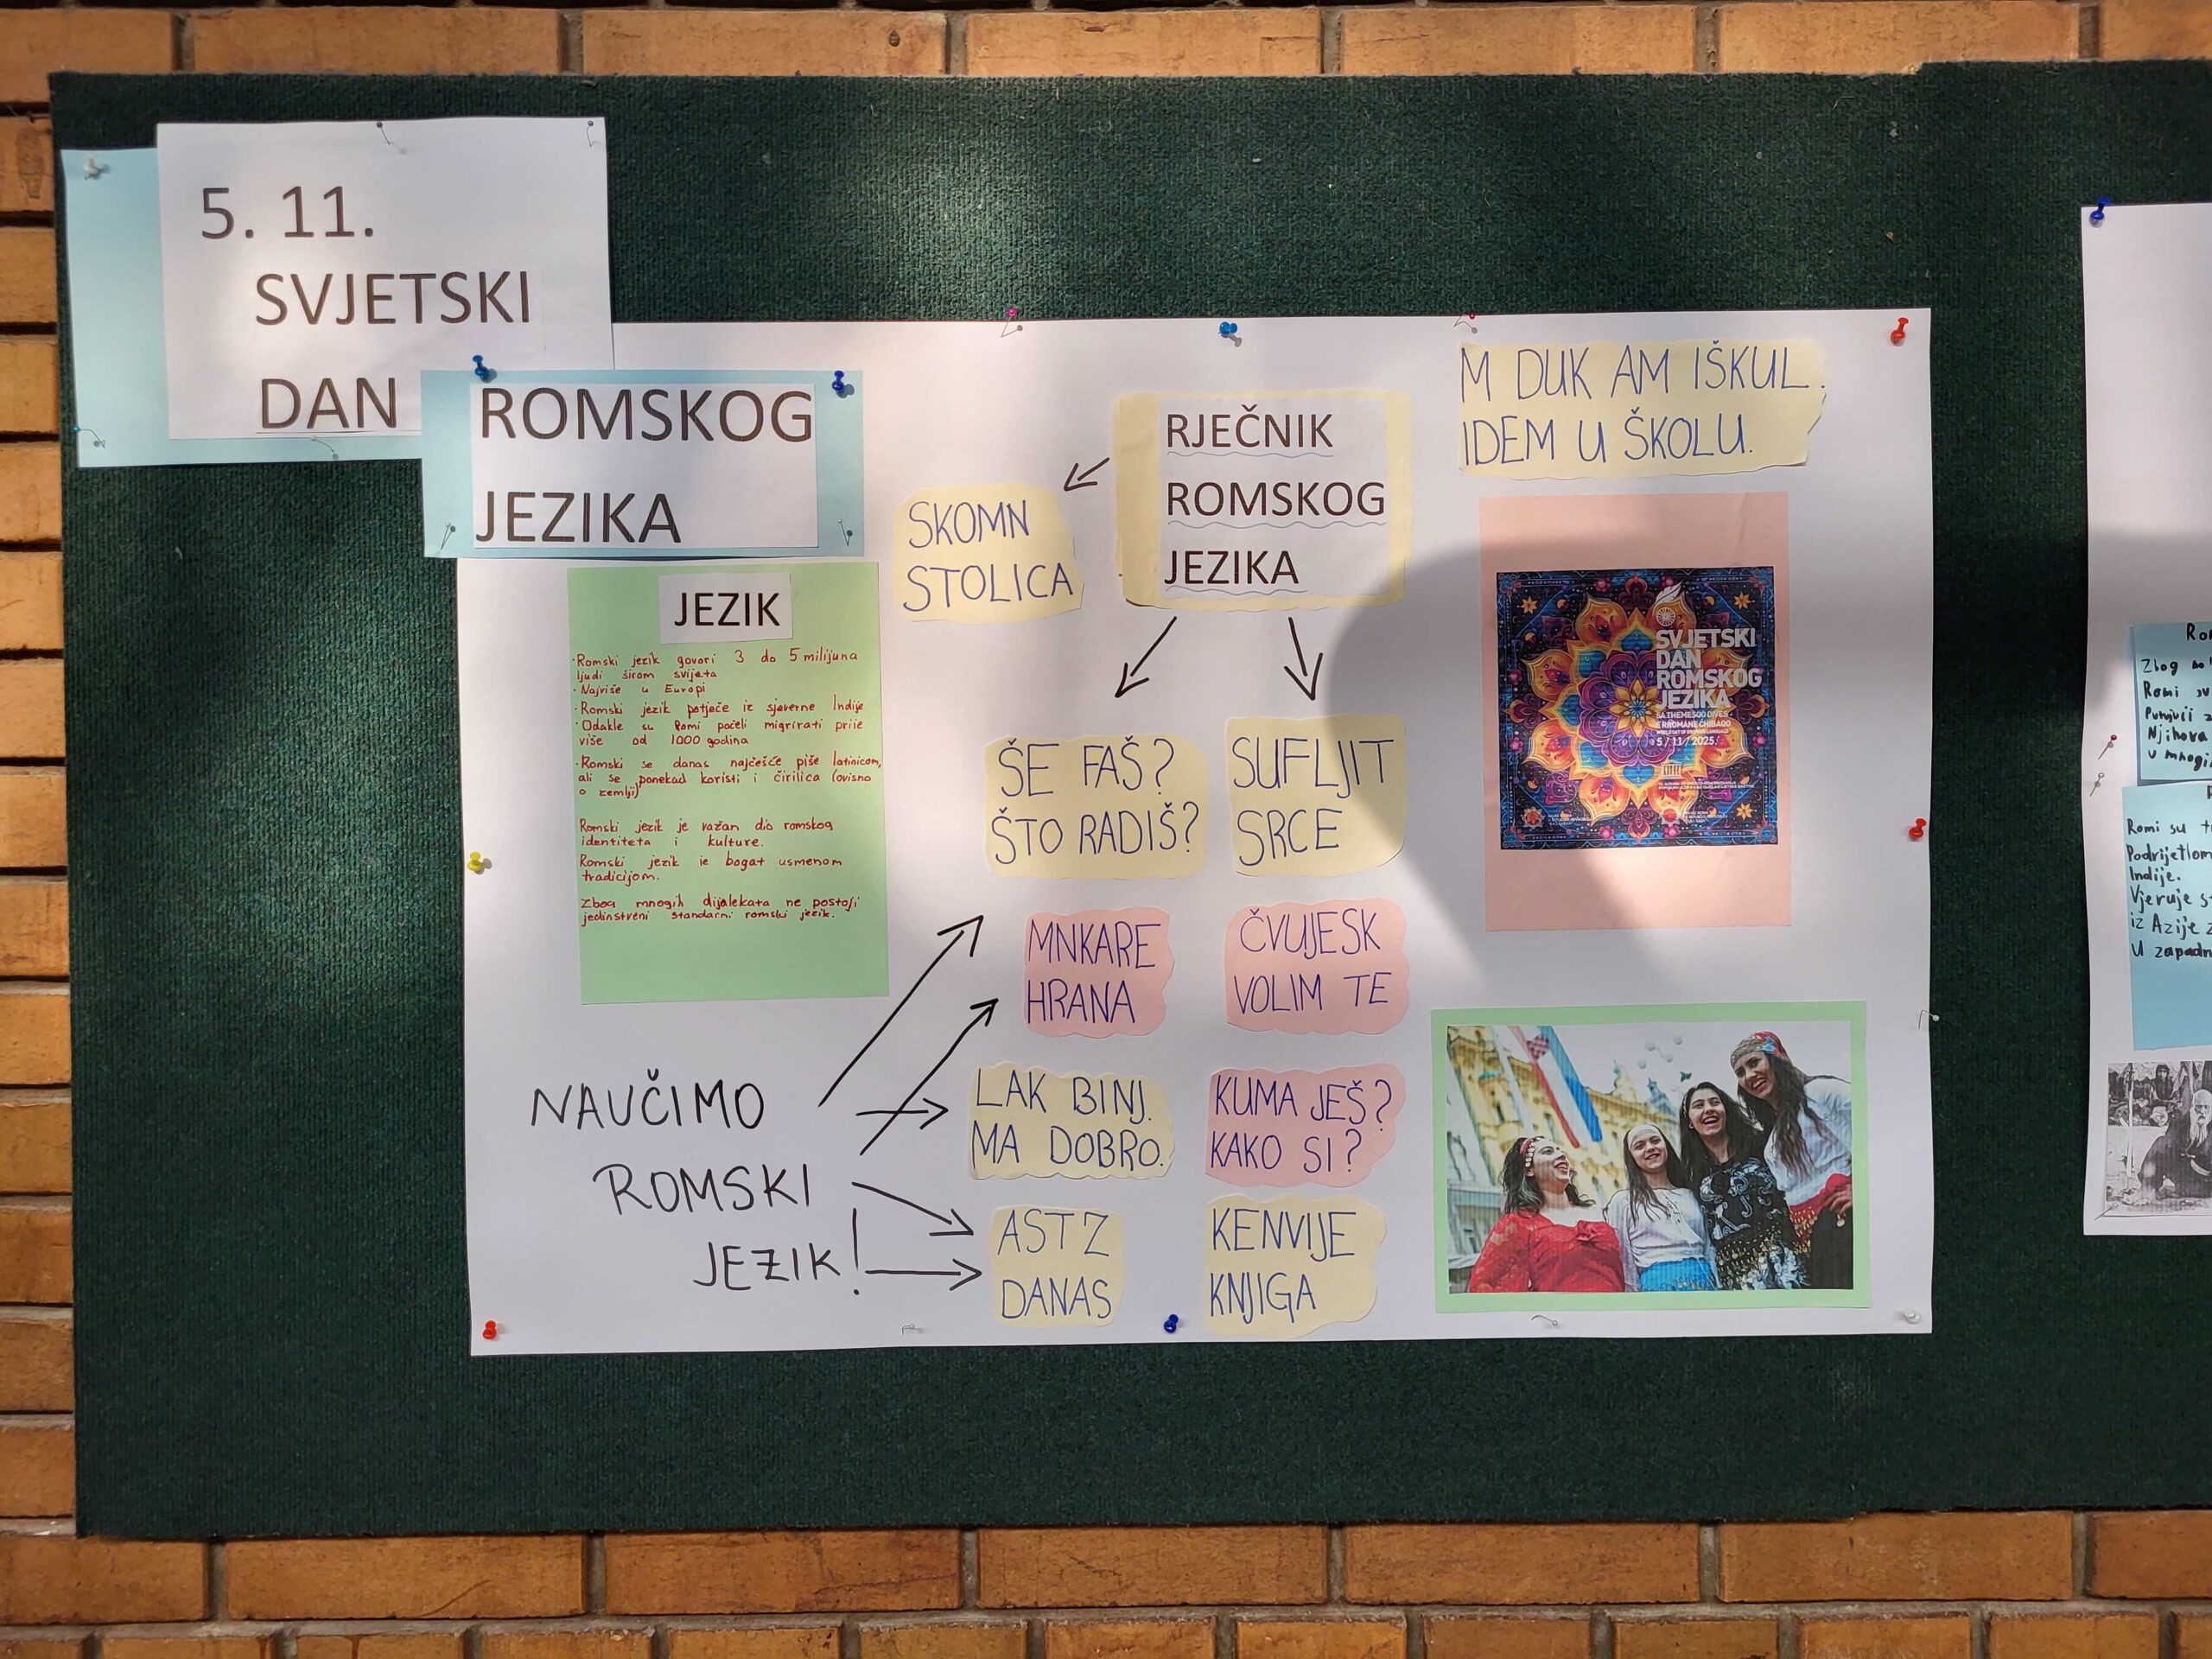 5. 11.
SVJETSKI
DAN
ROMSKOG
JEZIKA
JEZIK
·Romski jezik govori 3 do 5 milijuna
ljudi širom svijeta
·Najviše u Europi
·Romski jezik potječe iz sjeverne Indije
·Odakle su Romi počeli migrirati prije
više od 1000 godina
·Romski se danas najčešće piše latinicom,
ali se ponekad koristi i ćirilica (ovisno
o zemlji)
Romski jezik je važan dio romskog
identiteta i kulture.
Romski jezik je bogat usmenom
tradicijom.
Zbog mnogih dijalekata ne postoji
jedinstveni standarni romski jezik.
NAUČIMO
ROMSKI
JEZIK!
RJEČNIK
ROMSKOG
JEZIKA
SKOMN
STOLICA
ŠE FAŠ?
ŠTO RADIŠ?
SUFLJIT
SRCE
MNKARE
HRANA
ČVUJESK
VOLIM TE
LAK BINJ.
MA DOBRO.
KUMA JEŠ?
KAKO SI?
ASTZ
DANAS
KENVIJE
KNJIGA
M DUK AM IŠKUL.
IDEM U ŠKOLU.
SVJETSKI
DAN
ROMSKOG
JEZIKA
E RROMANE CHIBAQO
5/11/2025
Zbog
Romi
Njihova
Romi su
Podrijetlom
Indije.
Vjeruje
iz Azije
U